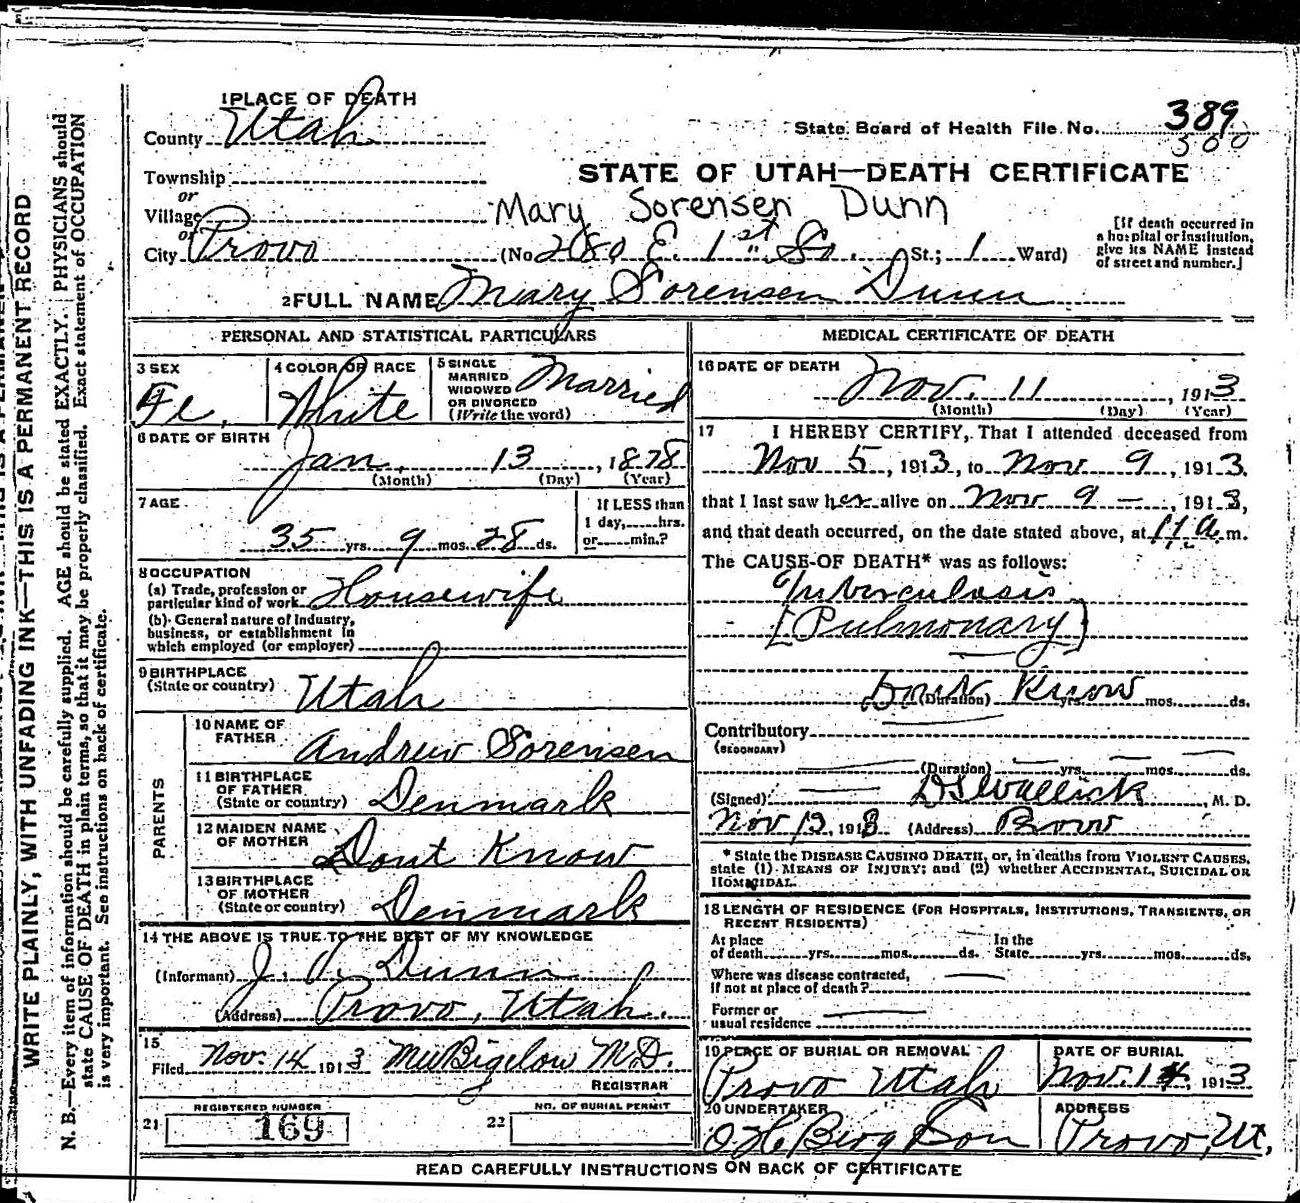 1 PLACE OF DEATH
County Utah
State Board of Health File No. 389
500
Township
or
Village
or
City Provo
STATE OF UTAH—DEATH CERTIFICATE
Mary Sorensen Dunn
(No 280 E. 1st So. St.; 1 Ward)
[If death occurred in
a hospital or institution,
give its NAME instead
of street and number.]
2 FULL NAME Mary Sorensen Dunn
PERSONAL AND STATISTICAL PARTICULARS
3 SEX
Fe.
4 COLOR OR RACE
White
5 SINGLE
MARRIED
WIDOWED
OR DIVORCED
(Write the word)
Married
6 DATE OF BIRTH
Jan. 13, 1878
(Month) (Day) (Year)
7 AGE
35 yrs. 9 mos. 28 ds.
If LESS than
1 day, hrs.
or min.?
8 OCCUPATION
(a) Trade, profession or
particular kind of work Housewife
(b) General nature of industry,
business, or establishment in
which employed (or employer)
9 BIRTHPLACE
(State or country) Utah
PARENTS
10 NAME OF
FATHER Andrew Sorensen
11 BIRTHPLACE
OF FATHER
(State or country) Denmark
12 MAIDEN NAME
OF MOTHER Dont Know
13 BIRTHPLACE
OF MOTHER
(State or country) Denmark
14 THE ABOVE IS TRUE TO THE BEST OF MY KNOWLEDGE
(Informant) J. Dunn
(Address) Provo, Utah.
15
Filed Nov. 14 1913 Bigelow M.D.
REGISTRAR
REGISTERED NUMBER
21 169
NO. OF BURIAL PERMIT
22
MEDICAL CERTIFICATE OF DEATH
16 DATE OF DEATH
Nov. 11, 1913
(Month) (Day) (Year)
17 I HEREBY CERTIFY, That I attended deceased from
Nov 5, 1913, to Nov 9, 1913.
that I last saw her alive on Nov 9 —, 1913,
and that death occurred, on the date stated above, at 11 a. m.
The CAUSE OF DEATH* was as follows:
Tuberculosis
[Pulmonary]
Dont Know
(Duration) yrs. mos. ds.
Contributory
(SECONDARY)
(Duration) yrs. mos. ds.
(Signed) M. D.
Nov 12, 1913 (Address) Provo
* State the DISEASE CAUSING DEATH, or, in deaths from VIOLENT CAUSES,
state (1) MEANS OF INJURY; and (2) whether ACCIDENTAL, SUICIDAL OR
HOMICIDAL.
18 LENGTH OF RESIDENCE (FOR HOSPITALS, INSTITUTIONS, TRANSIENTS, OR
RECENT RESIDENTS)
At place
of death yrs. mos. ds.
In the
State yrs. mos. ds.
Where was disease contracted,
if not at place of death?
Former or
usual residence
19 PLACE OF BURIAL OR REMOVAL
Provo Utah
DATE OF BURIAL
Nov. 14 1913
20 UNDERTAKER
O H Berg Son
ADDRESS
Provo, Ut,
READ CAREFULLY INSTRUCTIONS ON BACK OF CERTIFICATE
WRITE PLAINLY, WITH UNFADING INK—THIS IS A PERMANENT RECORD
N. B.—Every item of information should be carefully supplied. AGE should be stated EXACTLY. PHYSICIANS should
state CAUSE OF DEATH in plain terms, so that it may be properly classified. Exact statement of OCCUPATION
is very important. See instructions on back of certificate.